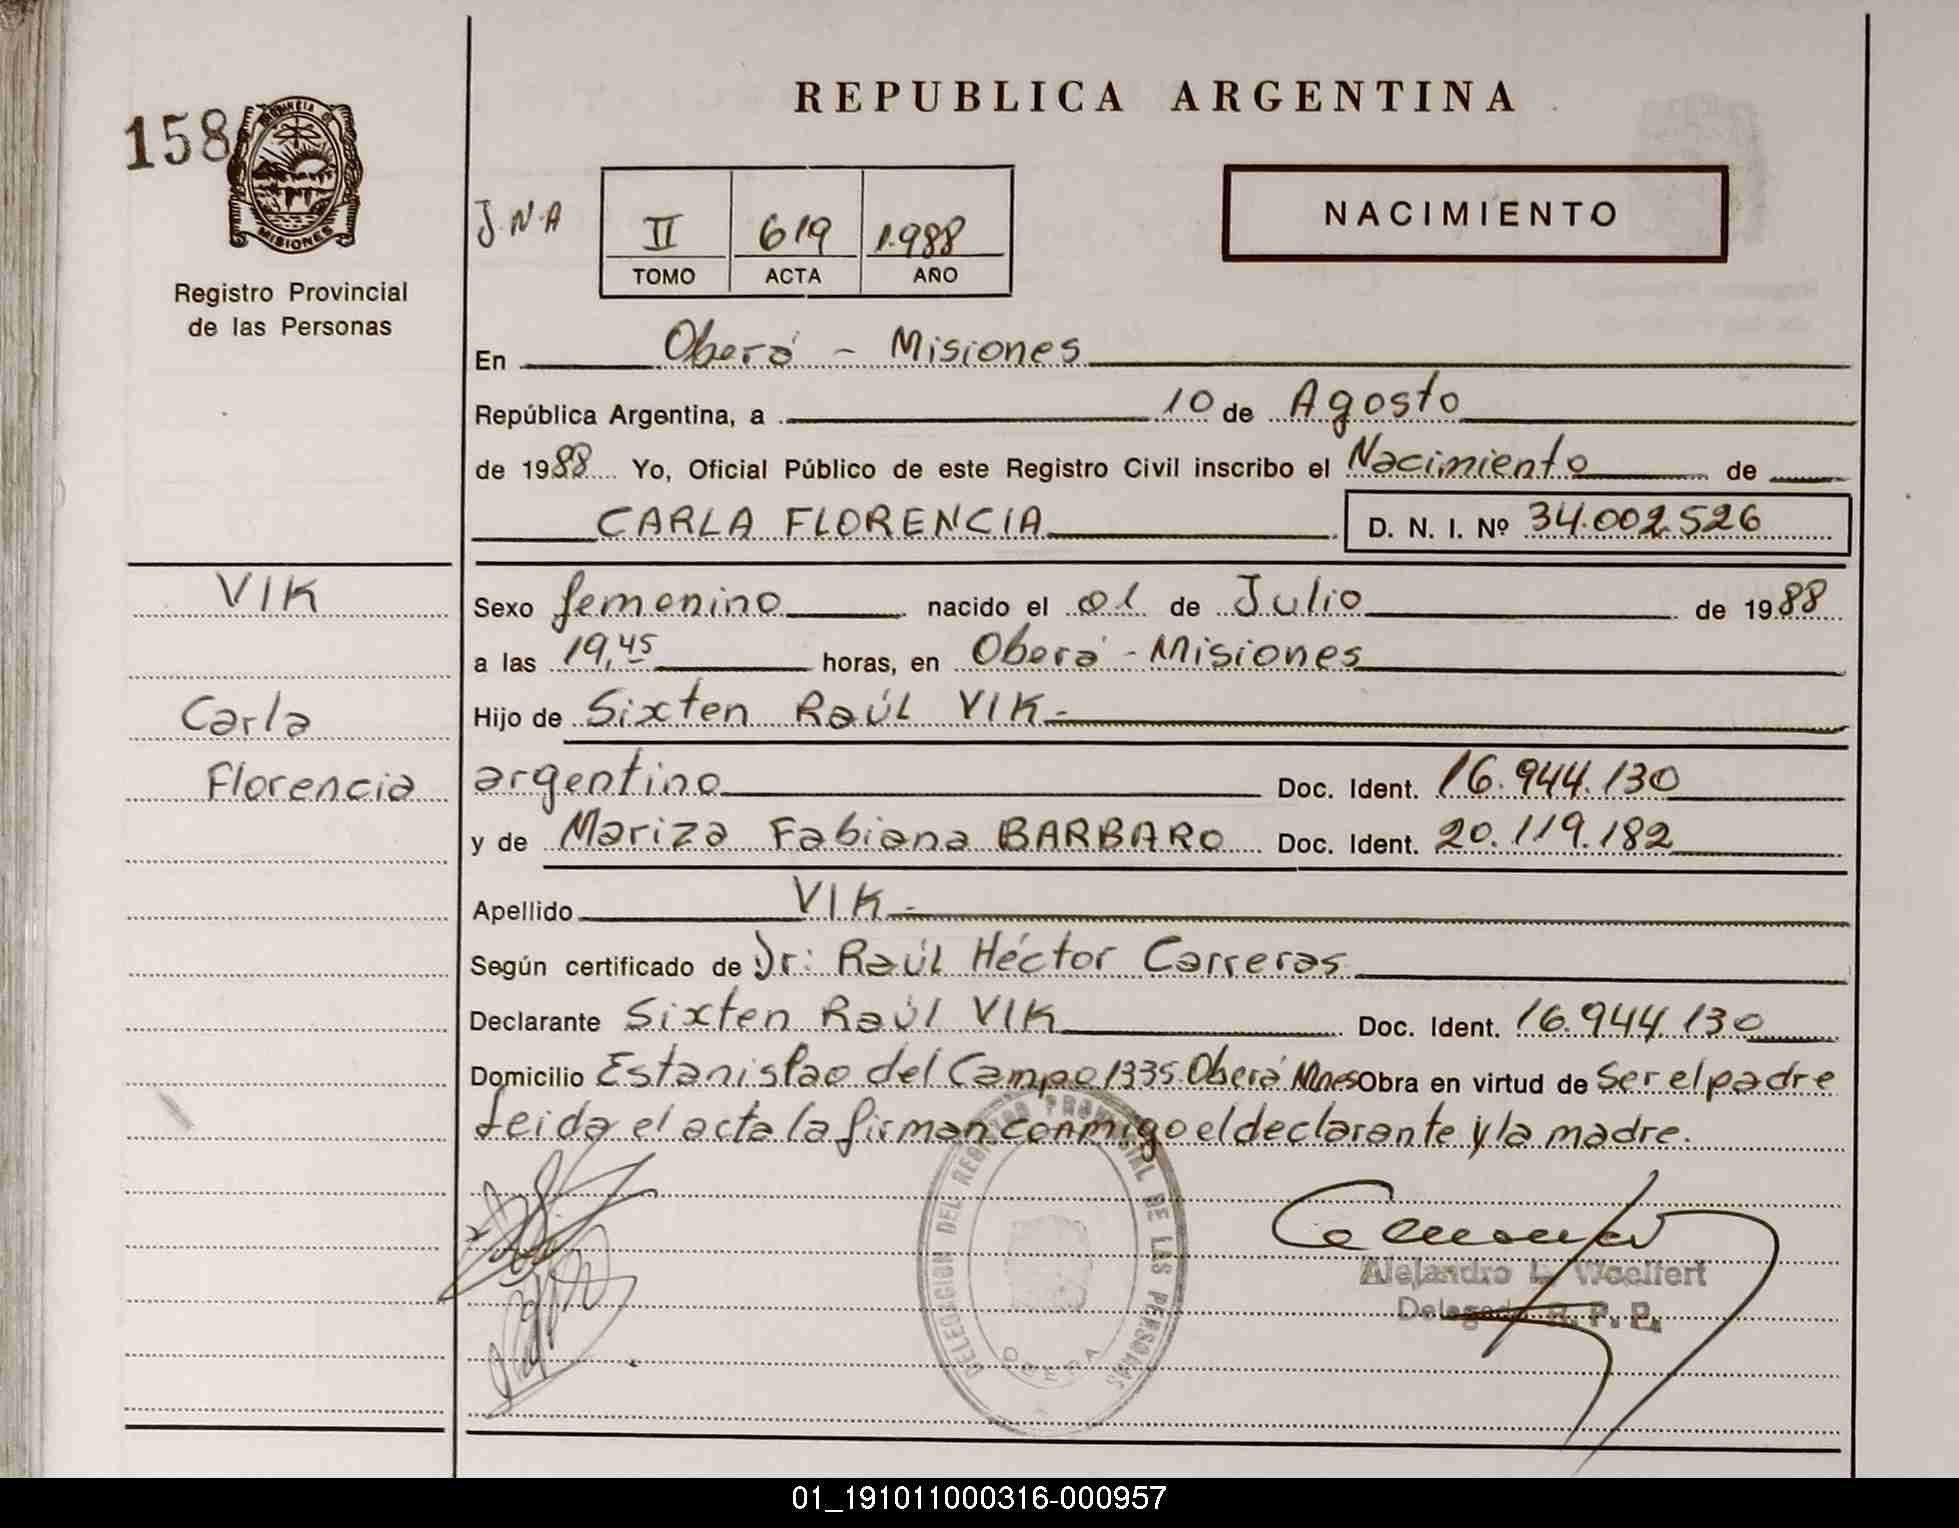 REPUBLICA ARGENTINA
158
PROVINCIA DE
MISIONES
Registro Provincial
de las Personas
J.N.A
II 619 1.988
TOMO ACTA AÑO
NACIMIENTO
En Oberá - Misiones
República Argentina, a 10 de Agosto
de 1988 Yo, Oficial Público de este Registro Civil inscribo el Nacimiento de
CARLA FLORENCIA D. N. I. Nº 34.002.526
VIK
Carla
Florencia
Sexo femenino nacido el 01 de Julio de 1988
a las 19,45 horas, en Oberá - Misiones
Hijo de Sixten Raúl VIK-
argentino Doc. Ident. 16.944.130
y de Mariza Fabiana BARBARO Doc. Ident. 20.119.182
Apellido VIK-
Según certificado de Dr: Raúl Héctor Carreras
Declarante Sixten Raúl VIK Doc. Ident. 16.944.130
Domicilio Estanislao del Campo 1335-Oberá Mnes Obra en virtud de Ser el padre
Leida el acta la firman conmigo el declarante y la madre.
DELEGACION DEL REGISTRO PROVINCIAL DE LAS PERSONAS
OBERA
Alejandro L. Woelfert
Delegado R. P. P.
01_191011000316-000957